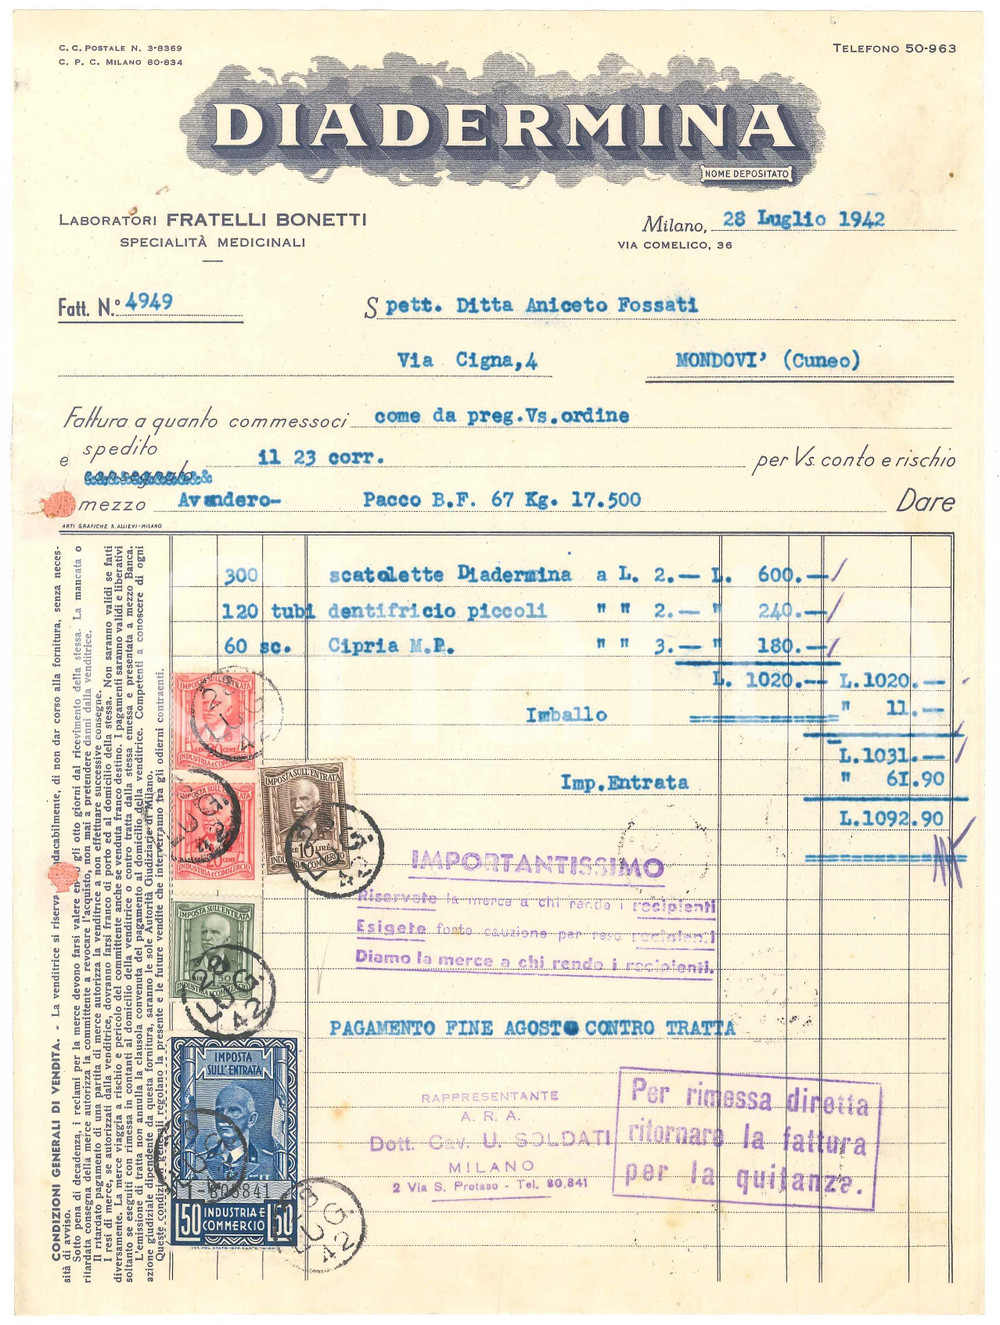 C. C. POSTALE N. 3-8369
C. P. C. MILANO 80-834
TELEFONO 50-963
DIADERMINA
NOME DEPOSITATO
LABORATORI FRATELLI BONETTI
SPECIALITÀ MEDICINALI
Milano, 28 Luglio 1942
VIA COMELICO, 36
Fatt. N.° 4949
Spett. Ditta Aniceto Fossati
Via Cigna,4 MONDOVI' (Cuneo)
Fattura a quanto commessoci come da preg.Vs.ordine
e spedito il 23 corr. per Vs. conto e rischio
consegnato
mezzo Avandero- Pacco B.F. 67 Kg. 17.500 Dare
ARTI GRAFICHE R. ALLIEVI-MILANO
300 scatolette Diadermina a L. 2.— L. 600.—
120 tubi dentifricio piccoli " " 2.— " 240.—
60 sc. Cipria M.P. " " 3.— " 180.—
L. 1020.— L.1020.—
Imballo " 11.—
L.1031.—
Imp.Entrata " 61.90
L.1092.90
IMPORTANTISSIMO
Riservate la merce a chi rende i recipienti
Esigete forte cauzione per reso recipienti
Diamo la merce a chi rende i recipienti.
PAGAMENTO FINE AGOSTO CONTRO TRATTA
RAPPRESENTANTE
A. R. A.
Dott. Cav. U. SOLDATI
MILANO
2 Via S. Protaso - Tel. 80.841
Per rimessa diretta
ritornare la fattura
per la quitanza.
CONDIZIONI GENERALI DI VENDITA. - La venditrice si riserva indacabilmente, di non dar corso alla fornitura, senza neces-
sità di avviso.
Sotto pena di decadenza, i reclami per la merce devono farsi valere entro gli otto giorni dal ricevimento della stessa. La mancata o
ritardata consegna della merce autorizza la committente a revocare l'acquisto, non mai a pretendere danni dalla venditrice.
Il ritardato pagamento di una partita di merce autorizza la venditrice a non effettuare successive consegne.
I resi di merce, se autorizzati dalla venditrice, dovranno farsi franco di porto ed al domicilio della stessa. Non saranno validi se fatti
diversamente. La merce viaggia a rischio e pericolo del committente anche se venduta franco destino. I pagamenti saranno validi e liberativi
soltanto se eseguiti con rimessa in contanti al domicilio della venditrice o contro tratta dalla stessa emessa e presentata a mezzo Banca.
L'emissione di tratta non annulla la clausola convenuta del pagamento al domicilio della venditrice. Competenti a conoscere di ogni
azione giudiziale dipendente da questa fornitura, saranno le sole Autorità Giudiziarie di Milano.
Queste condizioni generali regolano la presente e le future vendite che interverranno fra gli odierni contraenti.
IMPOSTA SULL'ENTRATA
INDUSTRIA E COMMERCIO
IMPOSTA SULL'ENTRATA
INDUSTRIA E COMMERCIO
IMPOSTA SULL'ENTRATA
10 LIRE
INDUSTRIA E COMMERCIO
IMPOSTA SULL'ENTRATA
INDUSTRIA E COMMERCIO
28 LUG. 42
IMPOSTA
SULL'ENTRATA
50 INDUSTRIA E COMMERCIO 50
LUG. 42